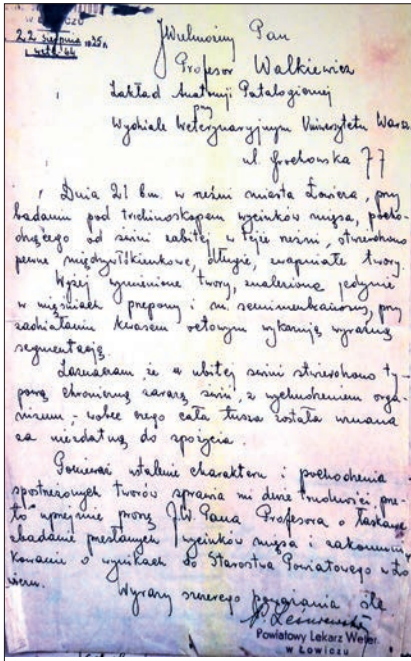 W ŁOWICZU
22 sierpnia 1935 r.
JWielmożny Pan
Profesor Walkiewicz
Zakład Anatomji Patalogicznej
przy
Wydziale Weterynaryjnym Uniwersytetu Warsz
ul. Grochowska 77
Dnia 21 bm. w rzeźni miasta Łowicza, przy
badaniu pod trichinoskopem wycinków mięsa, pocho-
dzącego od świni zabitej w tejże rzeźni, stwierdzono
pewne międzywłókienkowe, długie, zwapniałe twory.
Wyżej wymienione twory, znalezione jedynie
w mięśniach przepony i m. semimembranosus, przy
zadziałaniu kwasem octowym wykazują wyraźną
segmentację.
Zaznaczam, że u ubitej świni stwierdzono ty-
pową chroniczną zarazę świń, z wychudzeniem orga-
nizmu, - wobec czego cała tusza została uznana
za niezdatną do spożycia.
Ponieważ ustalenie charakteru i pochodzenia
spostrzeżonych tworów sprawia mi duże trudności, prze-
to uprzejmie proszę J.W. Pana Profesora o łaskawe
zbadanie przesłanych wycinków mięsa i zakomuni-
kowanie o wynikach do Starostwa Powiatowego w Ło-
wiczu.
Wyrazy szczerego poważania śle
Powiatowy Lekarz Weter.
w Łowiczu